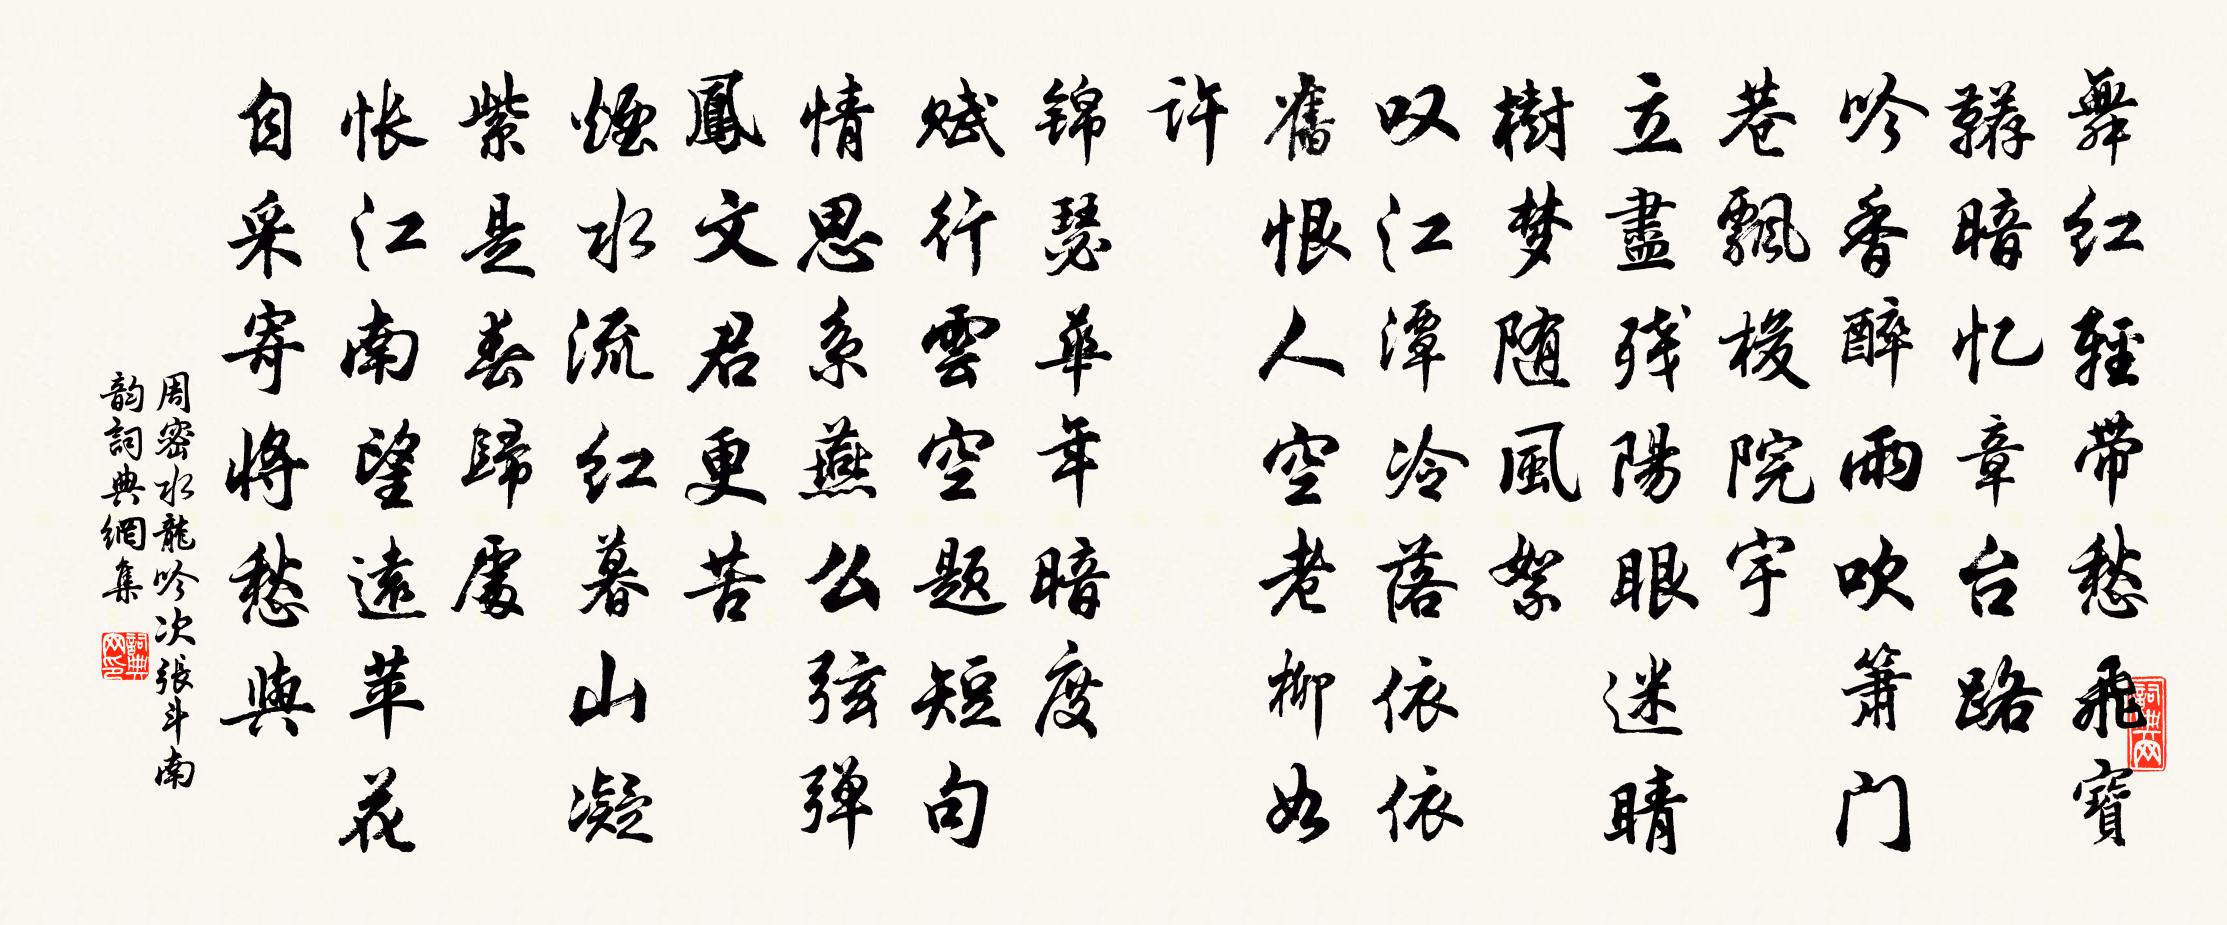 舞红輕带愁飛寶
鞯暗忆章台路
吟香醉雨吹箫门
巷飄梭院宇
立盡残陽眼迷晴
樹梦随風絮
叹江潭冷落依依
舊恨人空老柳如
许
锦瑟華年暗度
赋行雲空题短句
情思系燕么弦弹
鳳文君更苦
煙水流红暮山凝
紫是春歸處
怅江南望遠苹花
自采寄将愁與
周密水龍吟次張斗南
韵詞典網集
詞典网印
詞典网